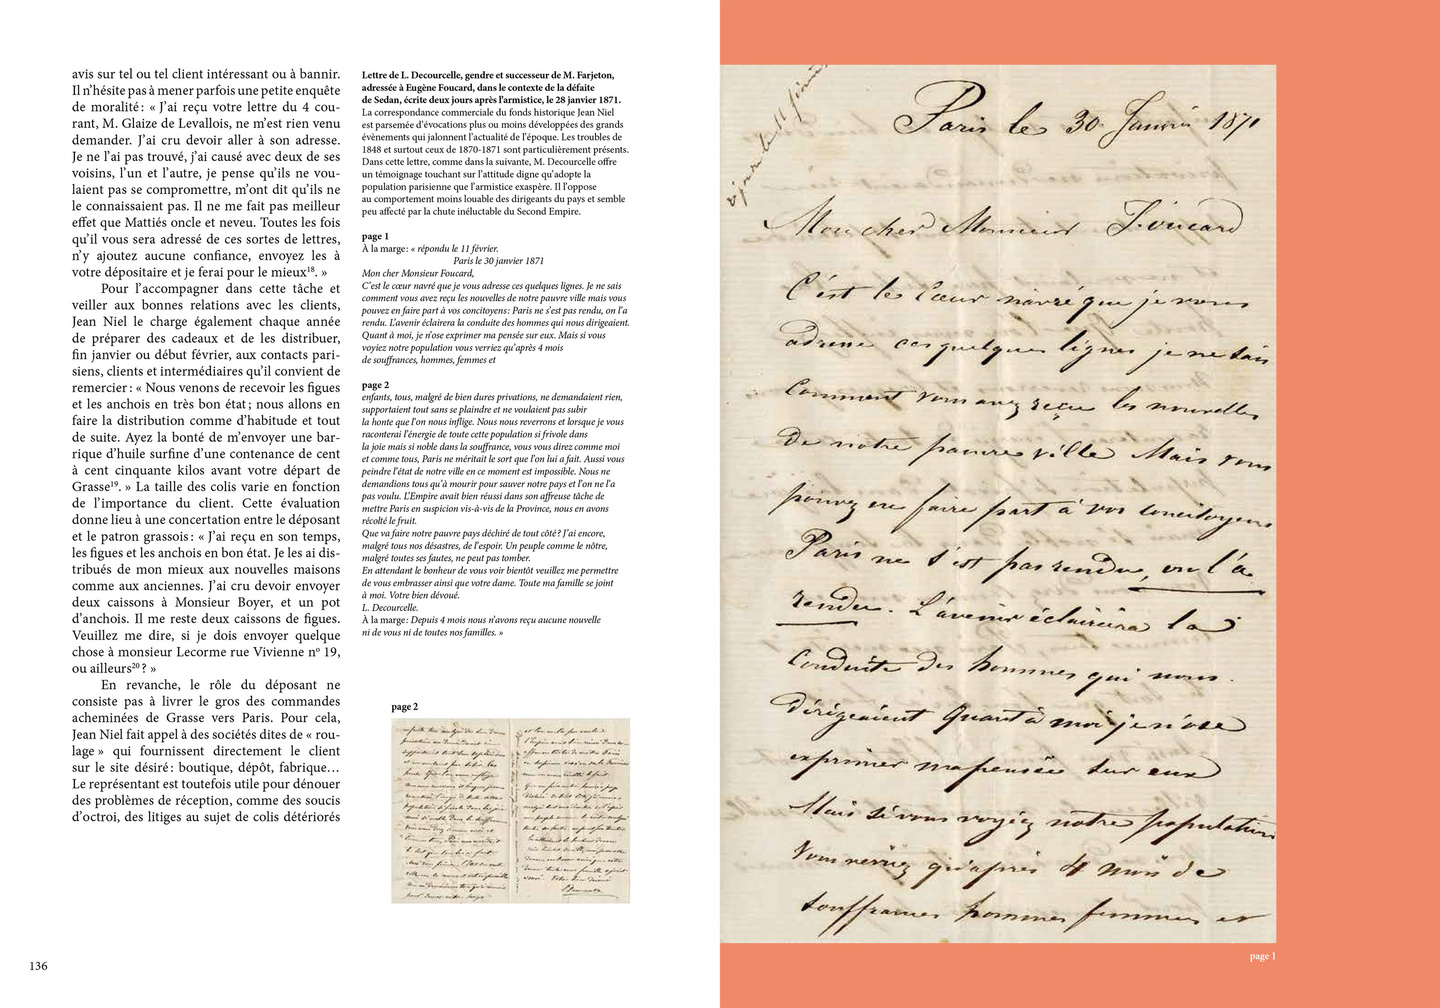 avis sur tel ou tel client intéressant ou à bannir.
Il n’hésite pas à mener parfois une petite enquête
de moralité : « J’ai reçu votre lettre du 4 cou-
rant, M. Glaize de Levallois, ne m’est rien venu
demander. J’ai cru devoir aller à son adresse.
Je ne l’ai pas trouvé, j’ai causé avec deux de ses
voisins, l’un et l’autre, je pense qu’ils ne vou-
laient pas se compromettre, m’ont dit qu’ils ne
le connaissaient pas. Il ne me fait pas meilleur
effet que Mattiés oncle et neveu. Toutes les fois
qu’il vous sera adressé de ces sortes de lettres,
n’y ajoutez aucune confiance, envoyez les à
votre dépositaire et je ferai pour le mieux¹⁸. »
Pour l’accompagner dans cette tâche et
veiller aux bonnes relations avec les clients,
Jean Niel le charge également chaque année
de préparer des cadeaux et de les distribuer,
fin janvier ou début février, aux contacts pari-
siens, clients et intermédiaires qu’il convient de
remercier : « Nous venons de recevoir les figues
et les anchois en très bon état ; nous allons en
faire la distribution comme d’habitude et tout
de suite. Ayez la bonté de m’envoyer une bar-
rique d’huile surfine d’une contenance de cent
à cent cinquante kilos avant votre départ de
Grasse¹⁹. » La taille des colis varie en fonction
de l’importance du client. Cette évaluation
donne lieu à une concertation entre le déposant
et le patron grassois : « J’ai reçu en son temps,
les figues et les anchois en bon état. Je les ai dis-
tribués de mon mieux aux nouvelles maisons
comme aux anciennes. J’ai cru devoir envoyer
deux caissons à Monsieur Boyer, et un pot
d’anchois. Il me reste deux caissons de figues.
Veuillez me dire, si je dois envoyer quelque
chose à monsieur Lecorme rue Vivienne nº 19,
ou ailleurs²⁰ ? »
En revanche, le rôle du déposant ne
consiste pas à livrer le gros des commandes
acheminées de Grasse vers Paris. Pour cela,
Jean Niel fait appel à des sociétés dites de « rou-
lage » qui fournissent directement le client
sur le site désiré : boutique, dépôt, fabrique…
Le représentant est toutefois utile pour dénouer
des problèmes de réception, comme des soucis
d’octroi, des litiges au sujet de colis détériorés
136
Lettre de L. Decourcelle, gendre et successeur de M. Farjeton,
adressée à Eugène Foucard, dans le contexte de la défaite
de Sedan, écrite deux jours après l’armistice, le 28 janvier 1871.
La correspondance commerciale du fonds historique Jean Niel
est parsemée d’évocations plus ou moins développées des grands
évènements qui jalonnent l’actualité de l’époque. Les troubles de
1848 et surtout ceux de 1870-1871 sont particulièrement présents.
Dans cette lettre, comme dans la suivante, M. Decourcelle offre
un témoignage touchant sur l’attitude digne qu’adopta la
population parisienne que l’armistice exaspère. Il l’oppose
au comportement moins louable des dirigeants du pays et semble
peu affecté par la chute inéluctable du Second Empire.
page 1
À la marge : « répondu le 11 février.
Paris le 30 janvier 1871
Mon cher Monsieur Foucard,
C’est le cœur navré que je vous adresse ces quelques lignes. Je ne sais
comment vous avez reçu les nouvelles de notre pauvre ville mais vous
pouvez en faire part à vos concitoyens : Paris ne s’est pas rendu, on l’a
rendu. L’avenir éclairera la conduite des hommes qui nous dirigeaient.
Quant à moi, je n’ose exprimer ma pensée sur eux. Mais si vous
voyiez notre population vous verriez qu’après 4 mois
de souffrances, hommes, femmes et
page 2
enfants, tous, malgré de bien dures privations, ne demandaient rien,
supportaient tout sans se plaindre et ne voulaient pas subir
la honte que l’on nous inflige. Nous nous reverrons et lorsque je vous
raconterai l’énergie de toute cette population si frivole dans
la joie mais si noble dans la souffrance, vous vous direz comme moi
et comme tous, Paris ne méritait le sort que l’on lui a fait. Aussi vous
peindre l’état de notre ville en ce moment est impossible. Nous ne
demandions tous qu’à mourir pour sauver notre pays et l’on ne l’a
pas voulu. L’Empire avait bien réussi dans son affreuse tâche de
mettre Paris en suspicion vis-à-vis de la Province, nous en avons
récolté le fruit.
Que va faire notre pauvre pays déchiré de tout côté ? J’ai encore,
malgré tous nos désastres, de l’espoir. Un peuple comme le nôtre,
malgré toutes ses fautes, ne peut pas tomber.
En attendant le bonheur de vous voir bientôt veuillez me permettre
de vous embrasser ainsi que votre dame. Toute ma famille se joint
à moi. Votre bien dévoué.
L. Decourcelle.
À la marge : Depuis 4 mois nous n’avons reçu aucune nouvelle
ni de vous ni de toutes nos familles. »
page 2
répondu le 11 février
Paris le 30 Janvier 1871
Mon cher Monsieur Foucard
C’est le Cœur navré que je vous
adresse ces quelques lignes je ne sais
Comment vous avez reçu les nouvelles
de notre pauvre ville Mais vous
pouvez en faire part à vos Concitoyens
Paris ne s’est pas rendu, on l’a
rendu. L’avenir éclairera la
Conduite des hommes qui nous
dirigeaient Quant à moi je n’ose
exprimer ma pensée sur eux
Mais si vous voyiez notre population
Vous verriez qu’après 4 mois de
souffrances hommes femmes et
page 1